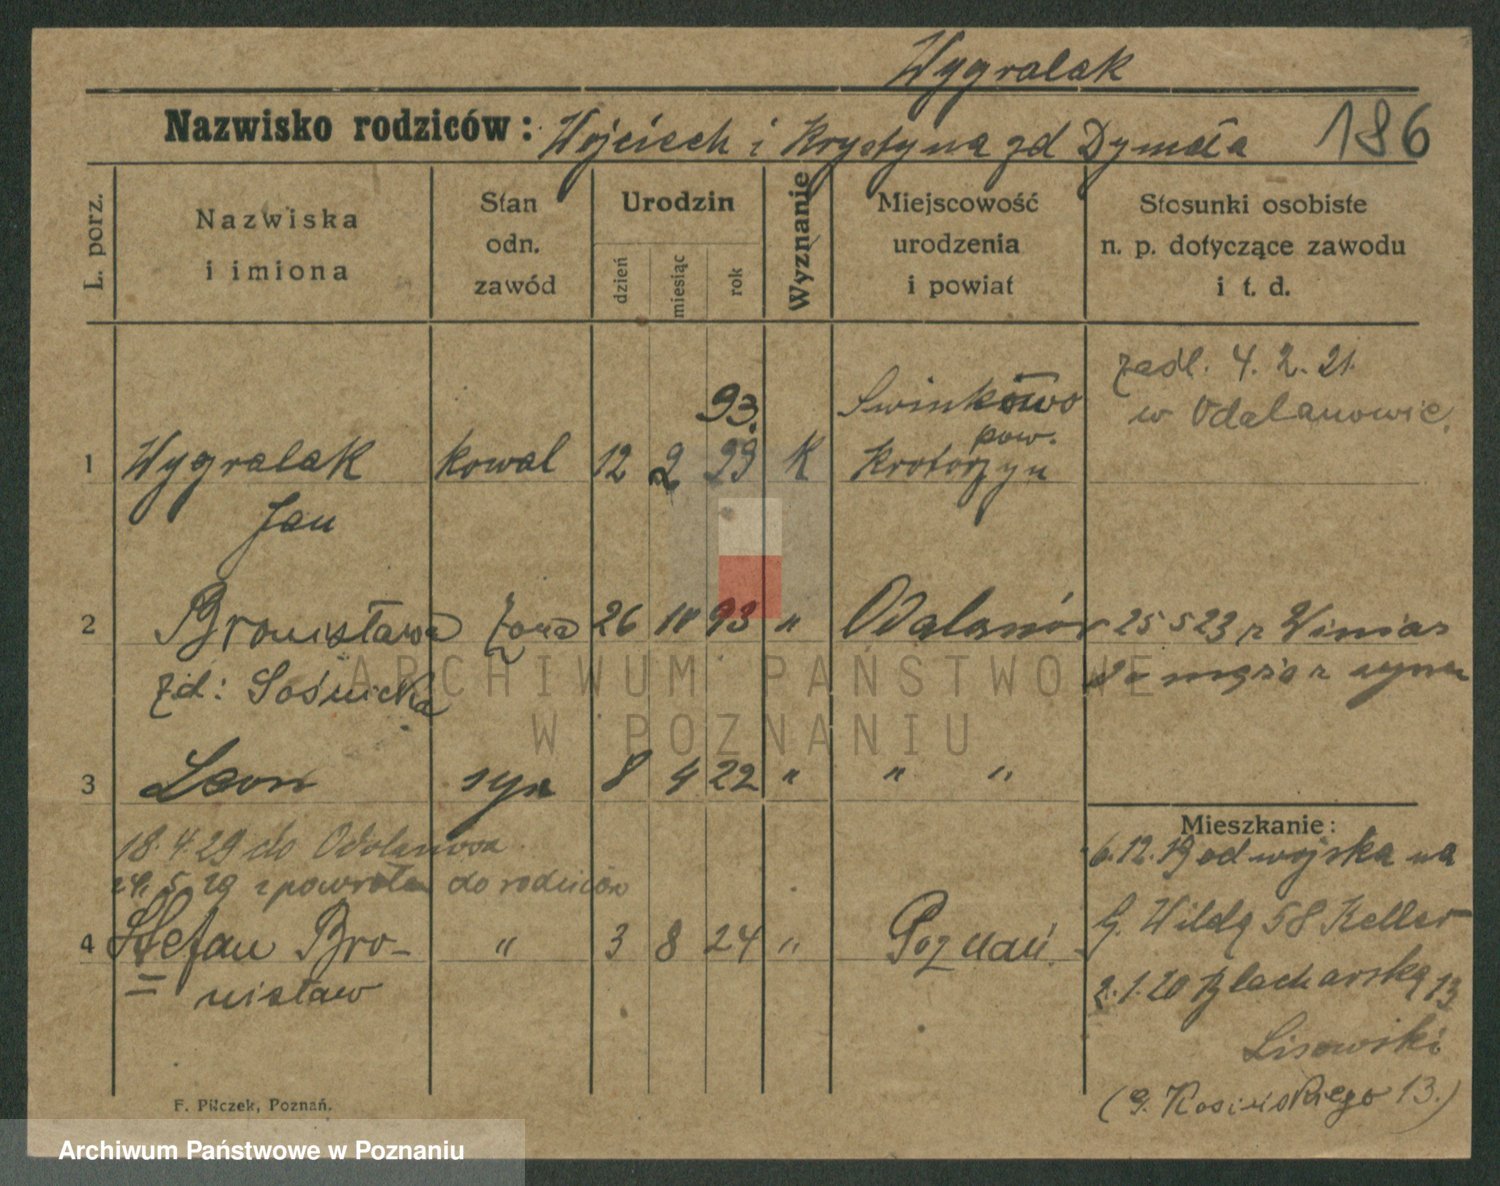 Wygralak
Nazwisko rodziców: Wojciech i Krystyna zd Dymała 186
L. porz.
Nazwiska i imiona
Stan odn. zawód
Urodzin
dzień miesiąc rok
Wyznanie
Miejscowość urodzenia i powiat
Stosunki osobiste n. p. dotyczące zawodu i t. d.
93.
1 Wygralak kowal 12 2 93 K Swinkowo
pow. Krotoszyn
Jan
zaśl. 4. 2. 21.
w Odolanowie.
2 Bronisława żona 26 10 93 " Odolanów
zd: Sośnicka
25 5 23 z Winiar
do męża z
3 Leon syn 8 4 22 " " "
18. 4. 29 do Odolanowa
24. 5. 29 z powrotem do rodziców
4 Stefan Bro- " 3 8 24 " Poznań.
nisław
Mieszkanie:
6. 12. 19 od wojska na
G. Wildę 58 Keller
2. 1. 20 Blacharską 13
Lisowski
(G. Kosińskiego 13.)
F. Pilczek, Poznań.
ARCHIWUM PAŃSTWOWE
W POZNANIU
Archiwum Państwowe w Poznaniu